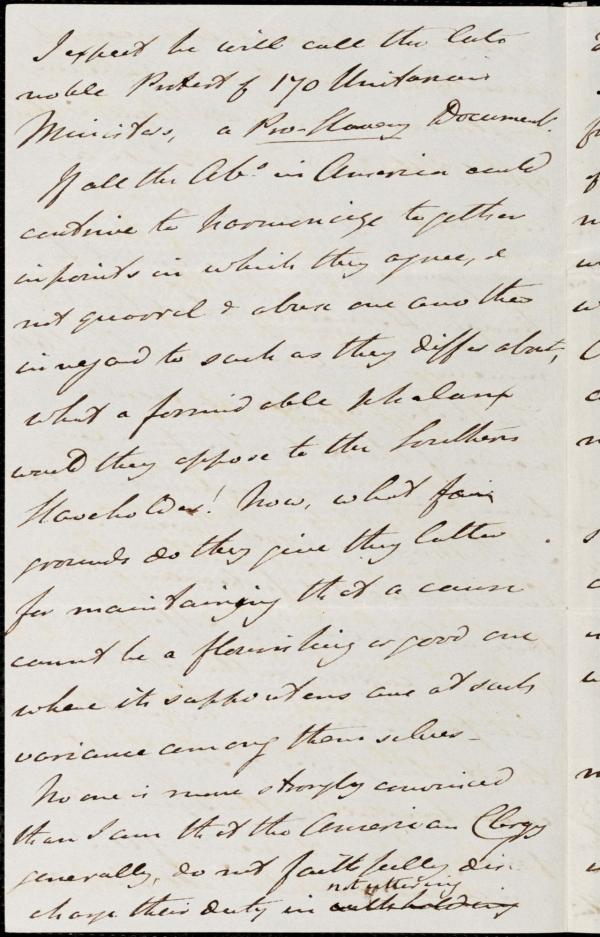 I expect he will call the late
noble Protest of 170 Unitarian
Ministers, a Pro-Slavery Document.
If all the Abs in America could
contrive to harmonize together
in points in which they agree, &
not quarrel & abuse one another
in regard to such as they differ about,
what a formidable phalanx
would they oppose to the Southern
Slaveholder! Now, what fair
grounds do they give the latter
for maintaining that a cause
cannot be a flourishing or good one
where its supporters are at such
variance among themselves-
No one is more strongly convinced
than I am that the American Clergy
generally, do not faithfully dis-
not uttering
charge their duty in withholding